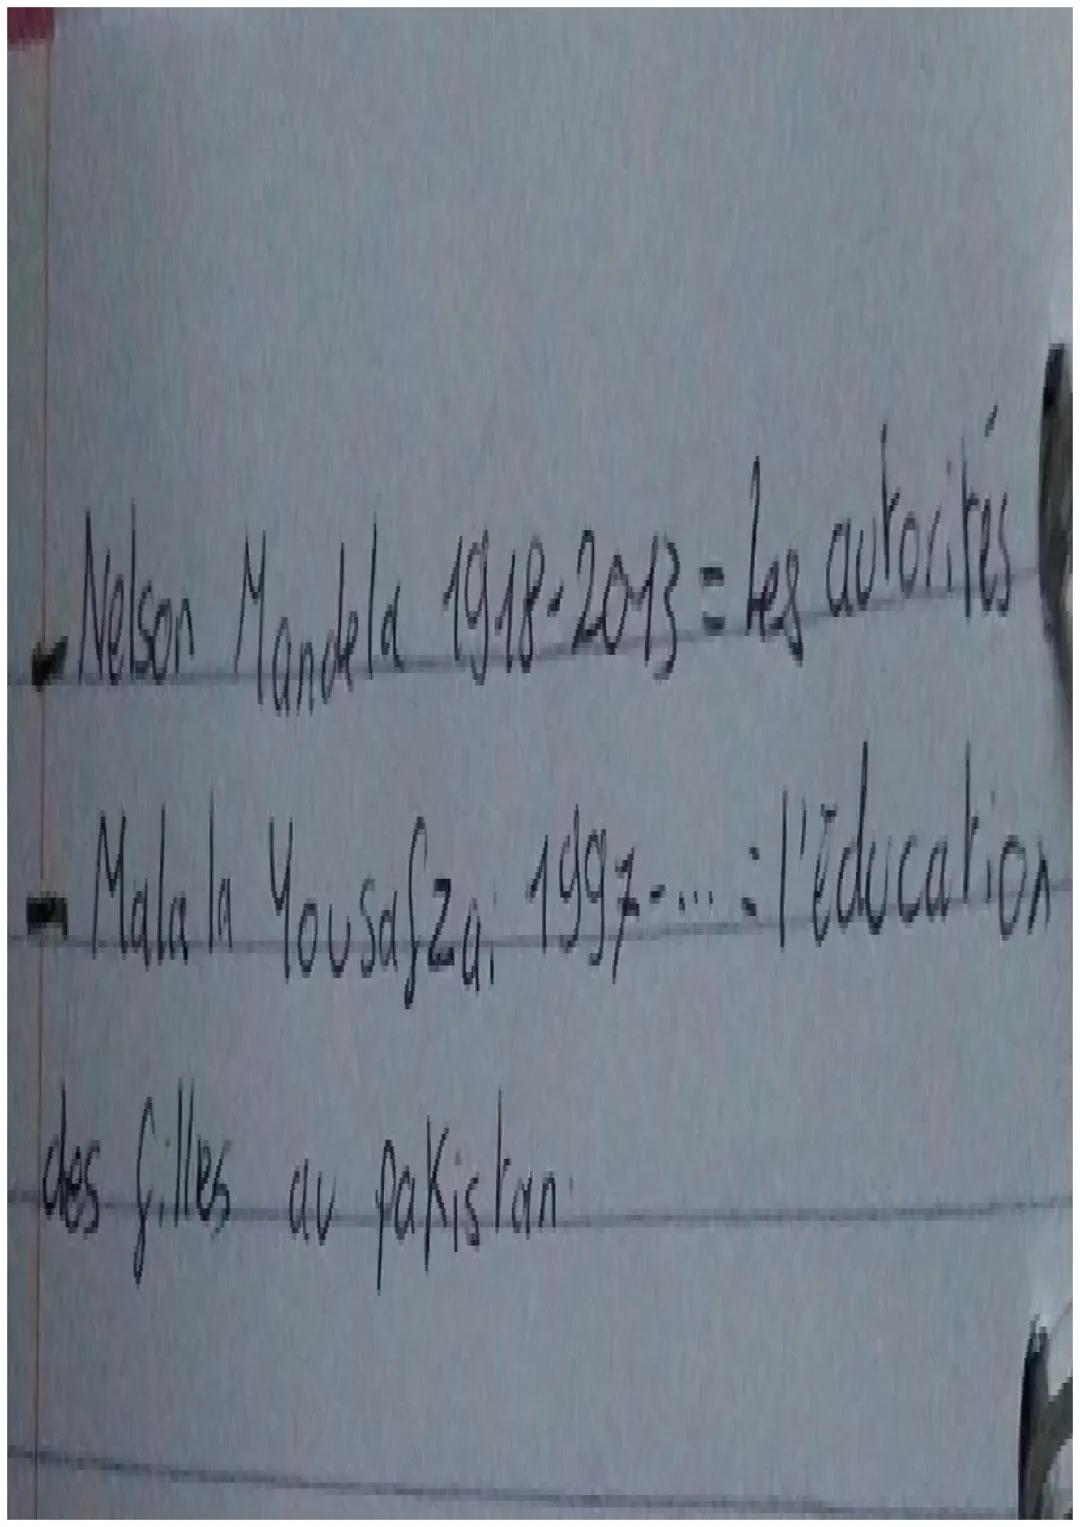 - Nelson Mandela 1918-2013 = Les autorités
- Malala Yousafzai 1997-... : l'éducation
des filles au pakistan